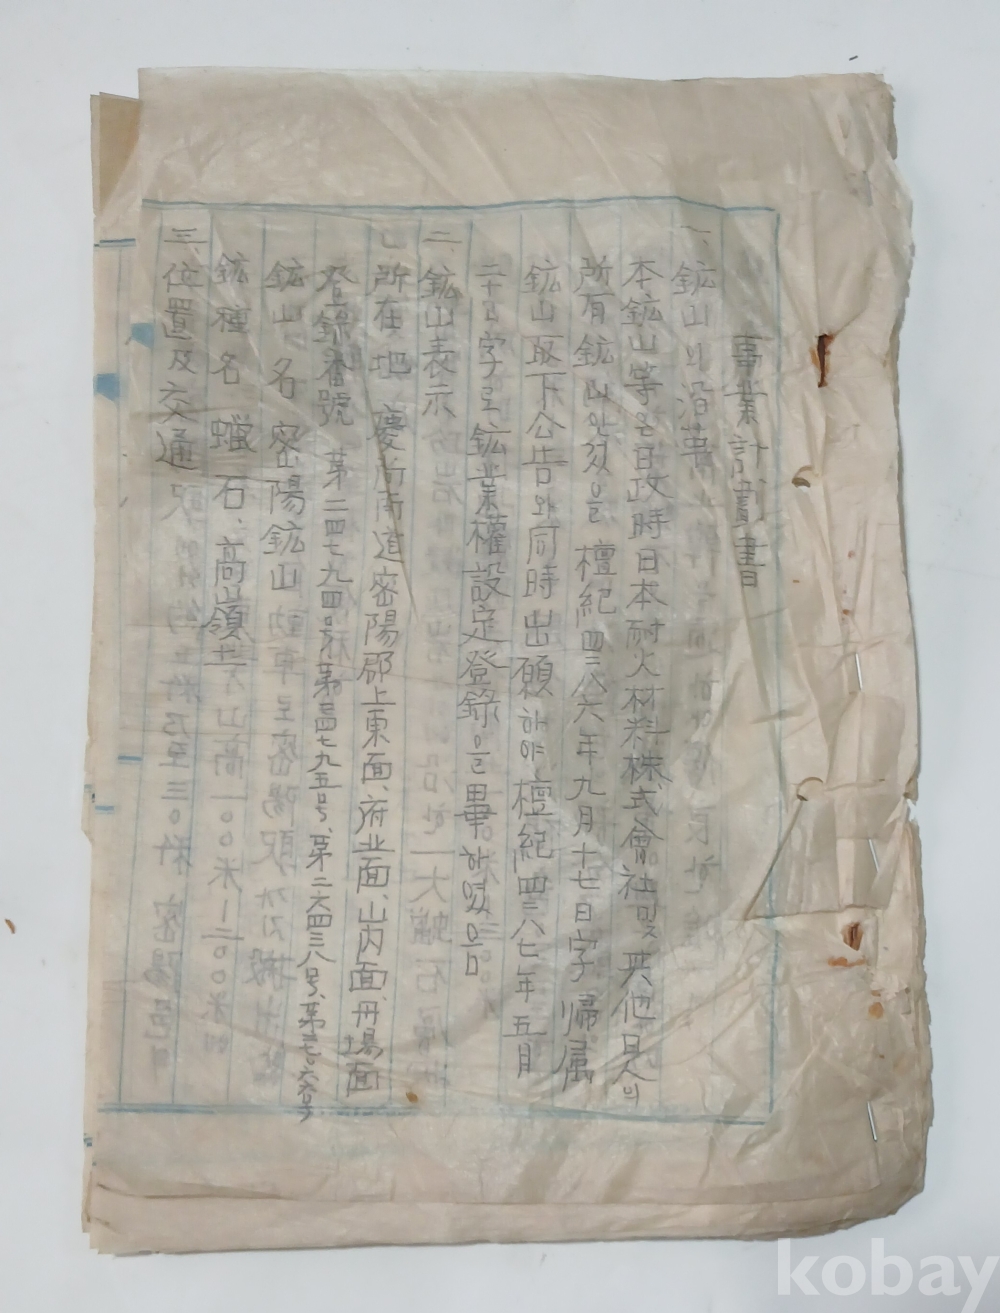 事業計劃書
一、鉱山의沿革
本鉱山等은日政時日本耐火材料株式會社및其他日人의
所有鉱山인것을檀紀四二八六年九月十七日字歸属
鉱山取下公告와同時出願하야檀紀四二八七年五月
二十日字로鉱業權設定登錄을畢하였음
二、鉱山表示
所在地 慶尙南道密陽郡上東面、府北面、山內面、丹場面
登錄番號 第二四七九四号、第二四七九五号、第二六四三八号、
鉱山名 密陽鉱山
鉱種名 蠟石、高嶺土
三、位置及交通
kobay